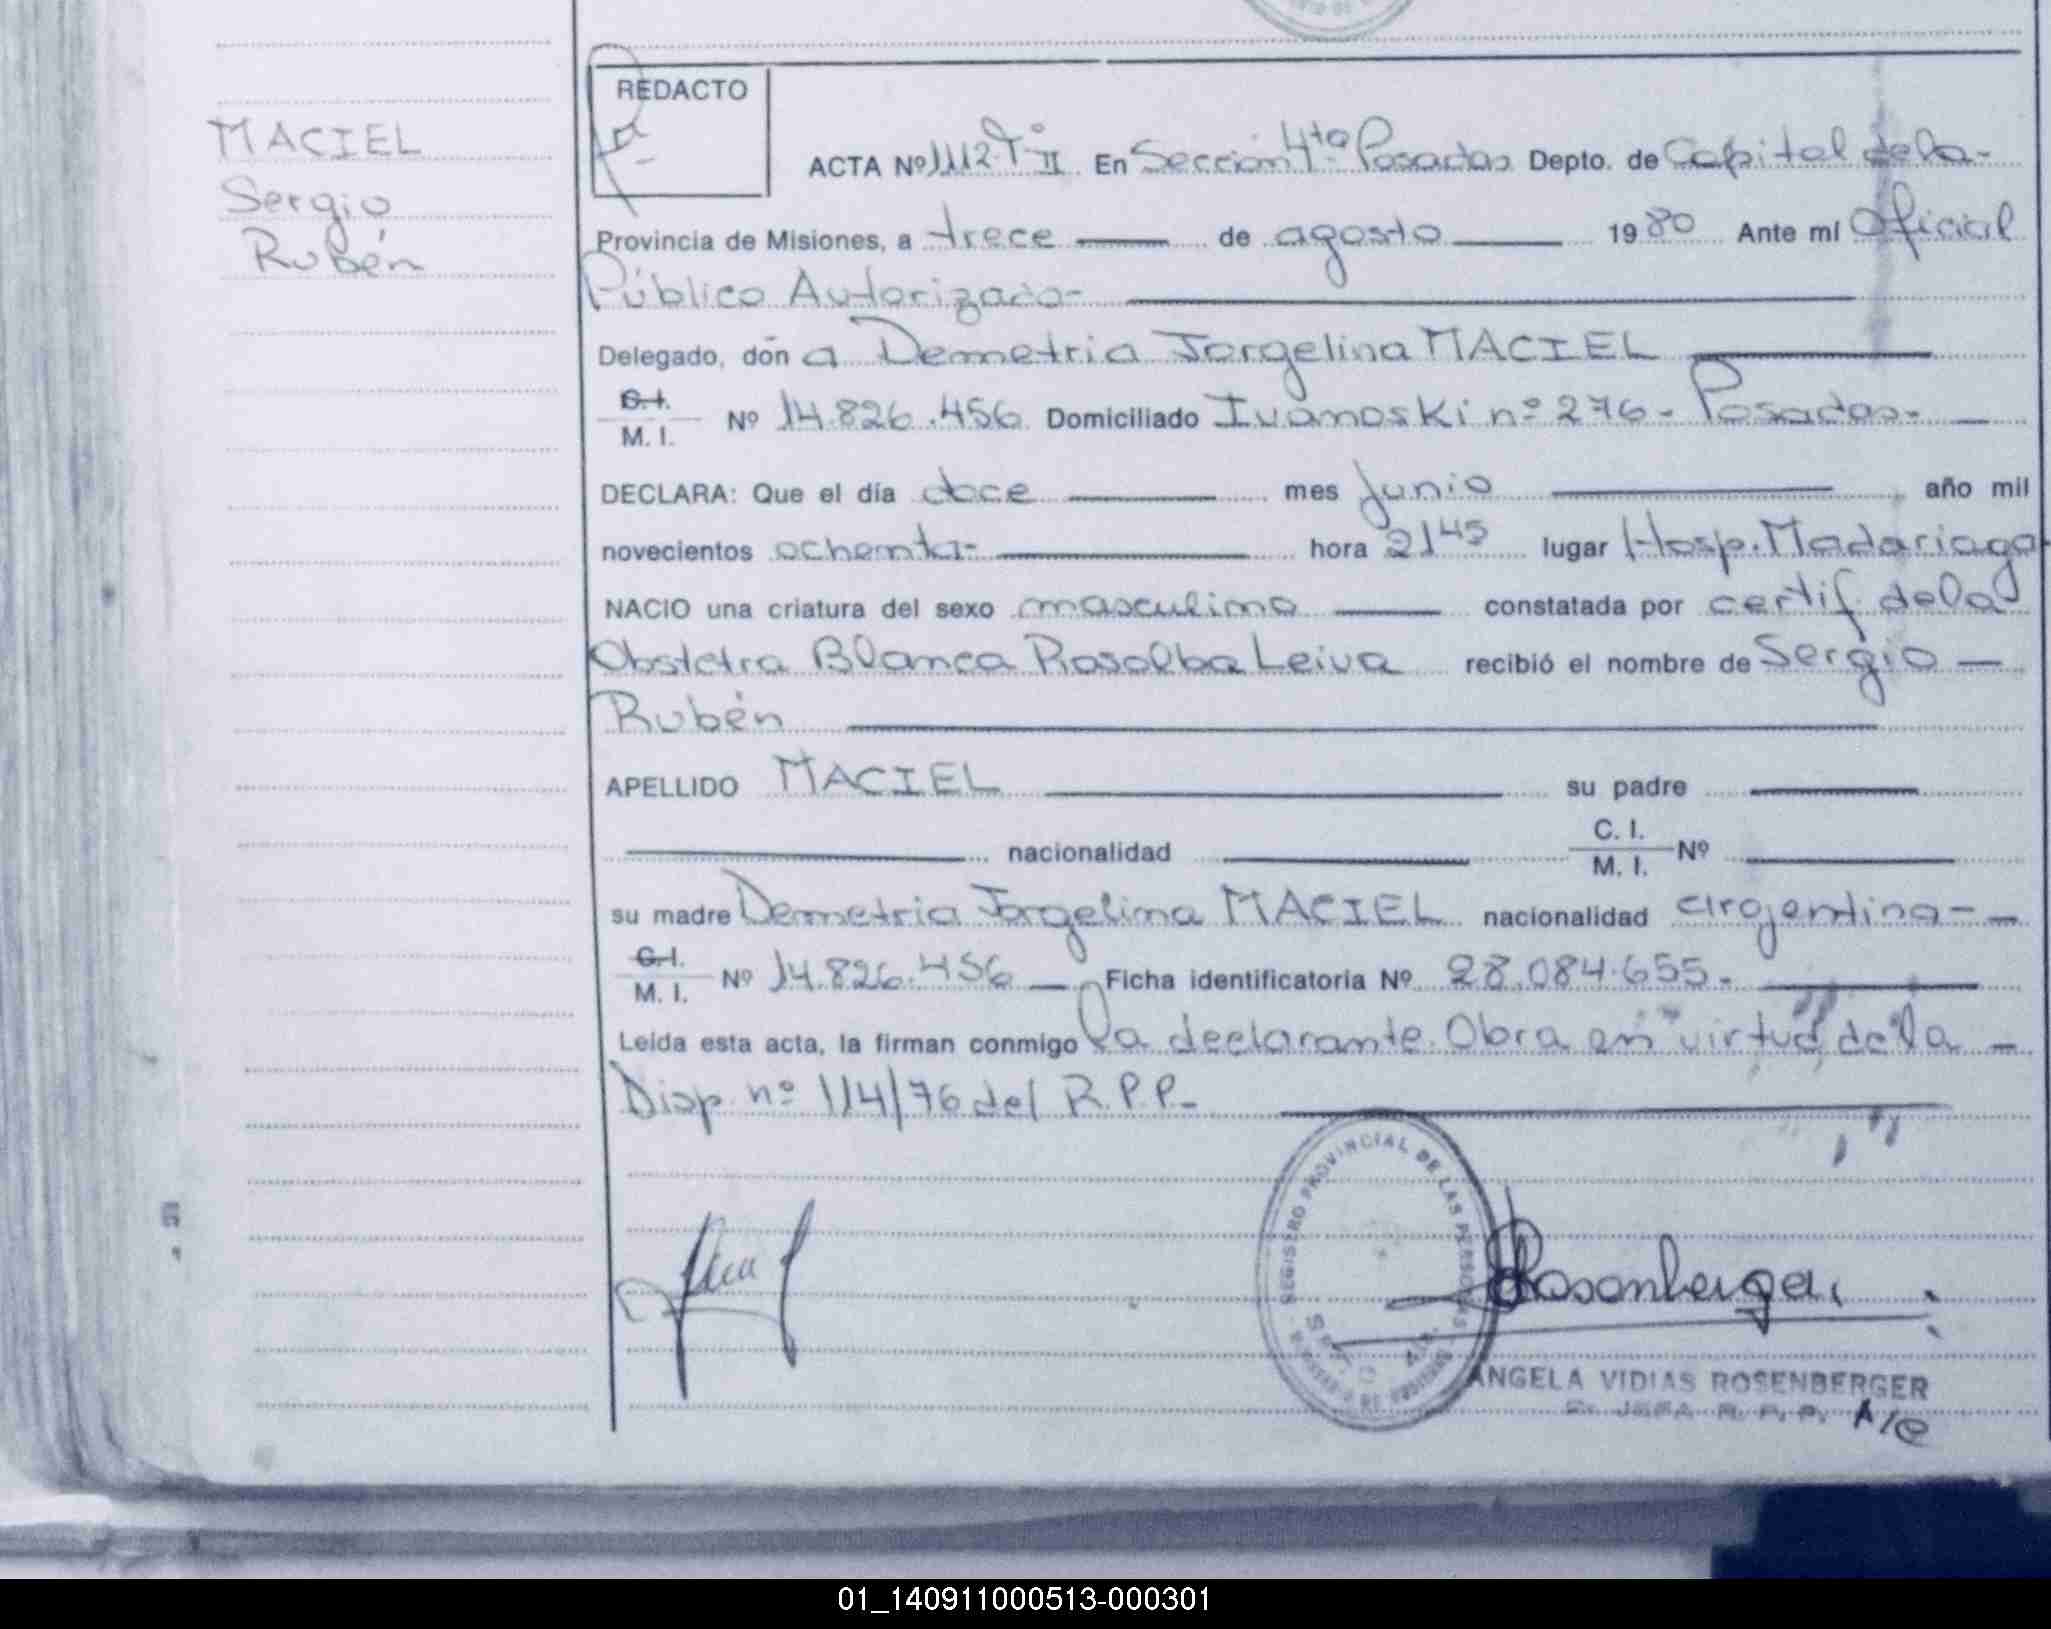 MACIEL
Sergio
Rubén
REDACTO
ACTA Nº 1112 Tº II En Sección 4ta Posadas Depto. de Capital de la-
Provincia de Misiones, a trece de agosto 1980 Ante mí Oficial
Público Autorizado-
Delegado, don a Demetria Jorgelina MACIEL
C. I.
M. I. Nº 14.826.456 Domiciliado Ivanoski nº 276- Posadas-
DECLARA: Que el día doce mes junio año mil
novecientos ochenta- hora 21 45 lugar Hosp. Madariaga
NACIO una criatura del sexo masculino constatada por certif de la
Obstetra Blanca Rosalba Leiva recibió el nombre de Sergio
Rubén
APELLIDO MACIEL su padre
nacionalidad C. I.
M. I. Nº
su madre Demetria Jorgelina MACIEL nacionalidad argentina-
C. I.
M. I. Nº 14.826.456 Ficha identificatoria Nº 28.084.655-
Leída esta acta, la firman conmigo la declarante. Obra en virtud de la
Disp. nº 114/76 del R.P.P.-
REGISTRO PROVINCIAL DE LAS PERSONAS
Rosenberger
ANGELA VIDIAS ROSENBERGER
JEFA R. P. P. A/C
01_140911000513-000301